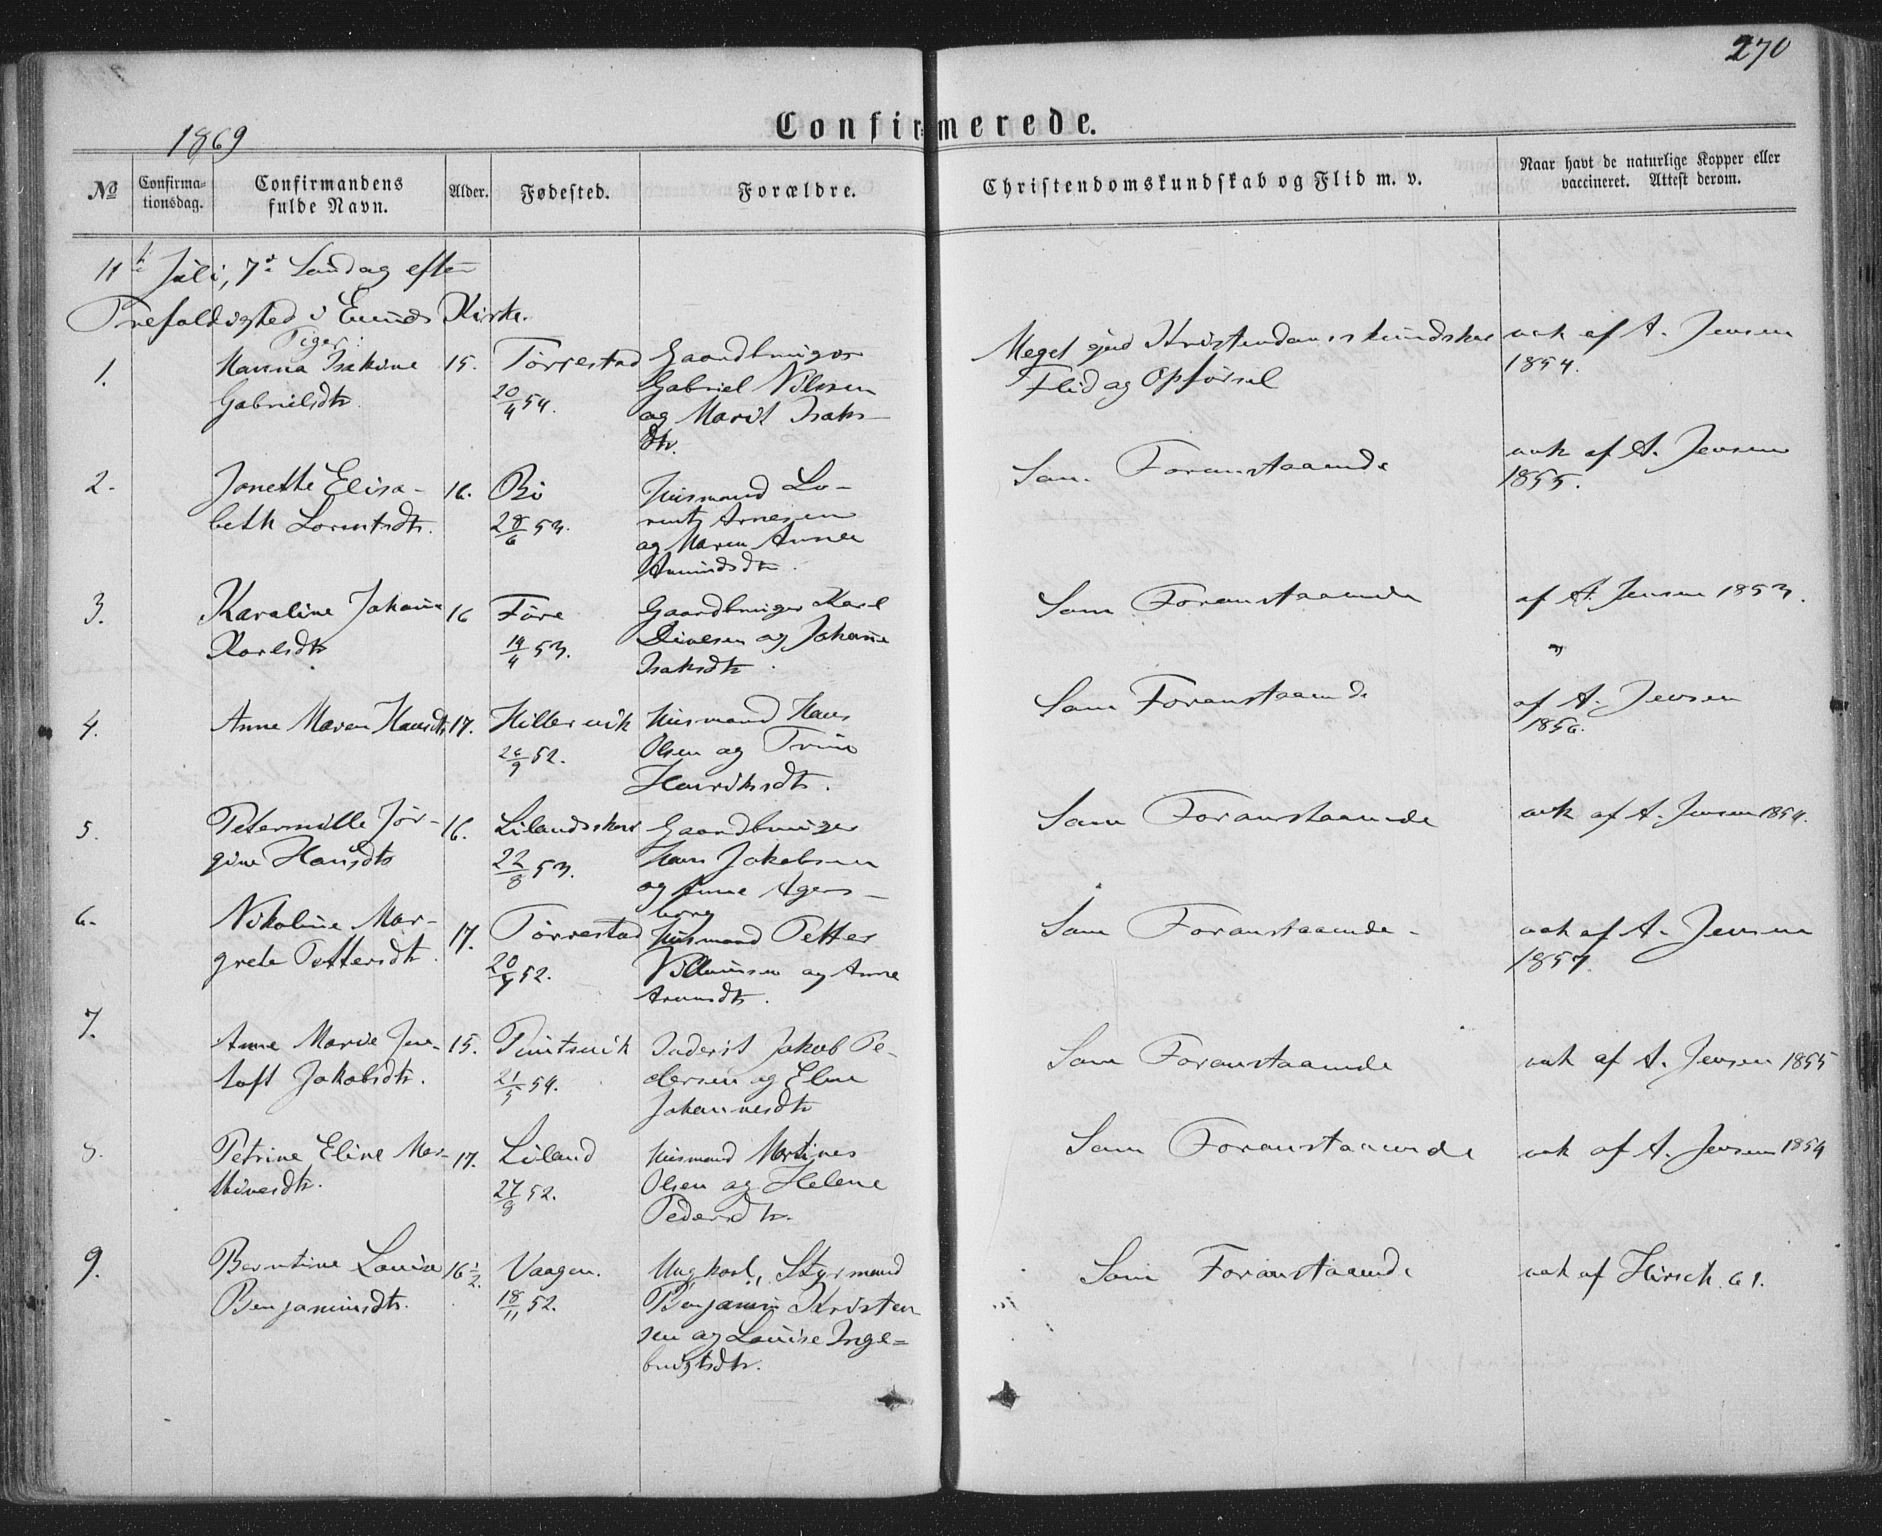 270
Confirmerede.
1869
No
Confirma-
tionsdag.
Confirmandens
fulde Navn.
Alder.
Fødested.
Forældre.
Christendomskundskab og Flid m. v.
Naar havt de naturlige Kopper eller
vaccineret. Attest derom.
11te Juli, 7de Søndag efter
Trefoldighed i Kirke.
Piger:
1.
Hanna Isakine
Gabrielsdtr.
15.
Torrestad
20/4 54.
Gaardbruger
Gabriel Nilssen
og Marit Isaks-
dtr.
Meget god Kristendomskundskab
Flid og Opførsel
vak af A. Jensen
1854.
2.
Jonette Elisa-
beth Lorentsdtr.
16.
Bö
28/6 53.
Husmand Lo-
rents Arnesen
og Maren Anna
Amundsdtr.
Som Foranstaaende
vak af A. Jensen
1855.
3.
Karoline Johanne
Karlsdtr
16
Føre
14/4 53.
Gaardbruger Karl
Sivesen og Johanne
Isaksdtr.
Som Foranstaaende
af A. Jensen 1853.
"
4.
Anne Maren Hansdtr
17.
Hillervik
26/9 52.
Husmand Hans
Olsen og Trine
Henriksdtr.
Som Foranstaaende
af A. Jensen
1856.
5.
Petermille Jør-
gine Hansdtr
16.
Lilandsskar
22/8 53.
Gaardbruger
Hans Jakobsen
og Anne Agers-
borg
Som Foranstaaende
vak af A. Jensen 1854.
6.
Nikoline Mar-
grete Pettersdtr.
17.
Torrestad
52.
Husmand Petter
Villumsen og Anne
Arnesdtr.
Som Foranstaaende.
vak af A. Jensen
1857.
7.
Anne Marie Jen-
toft Jakobsdtr.
15.
21/5 54.
Inderst Jakob Pe-
dersen og Eline
Johannesdtr
Som Foranstaaende
vak af A. Jensen 1855
8.
Petrine Eline Mar-
thinesdtr.
17.
Liland
27/8 52.
Husmand Martines
Olsen og Helene
Pedersdtr.
Som Foranstaaende
vak af A. Jensen 1854
9.
Berntine Lovisa
Benjaminsdtr.
16 1/2.
Vaagen.
18/11 52.
Ungkarl, Styrmand
Benjamin Kristen
sen og Louise Inge-
brigtsdtr.
Som Foranstaaende
vak af Hirsch 61.